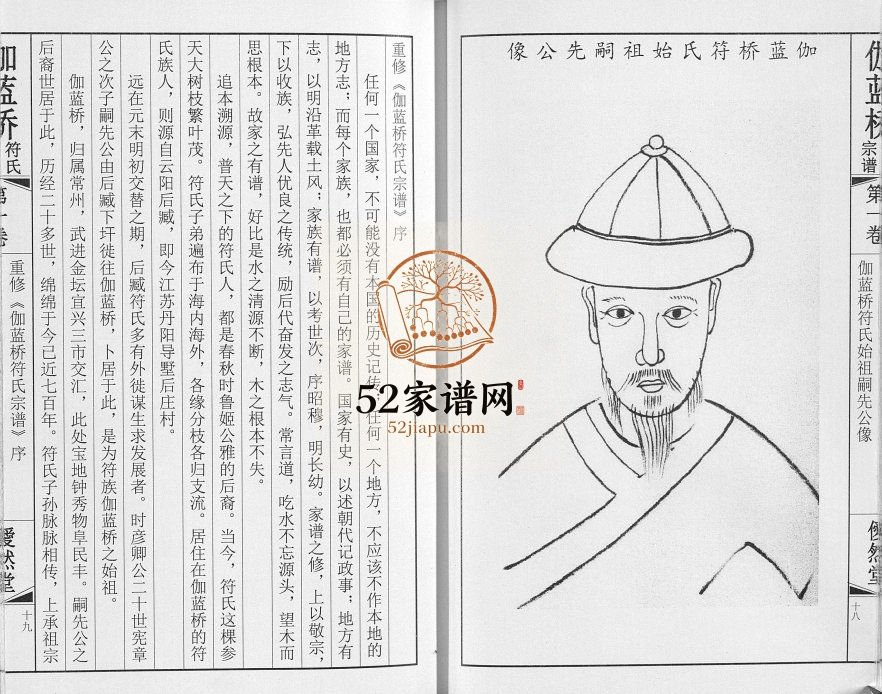 伽蓝桥宗谱
第一卷
伽蓝桥符氏始祖嗣先公像
僾然堂
十八
伽蓝桥符氏始祖嗣先公像
重修《伽蓝桥符氏宗谱》序
任何一个国家，不可能没有本国的历史记传；任何一个地方，不应该不作本地的
地方志；而每个家族，也都必须有自己的家谱。国家有史，以述朝代记政事；地方有
志，以明沿革载土风；家族有谱，以考世次，序昭穆，明长幼。家谱之修，上以敬宗，
下以收族，弘先人优良之传统，励后代奋发之志气。常言道，吃水不忘源头，望木而
思根本。故家之有谱，好比是水之清源不断，木之根本不失。
追本溯源，普天之下的符氏人，都是春秋时鲁姬公雅的后裔。当今，符氏这棵参
天大树枝繁叶茂。符氏子弟遍布于海内海外，各缘分枝各归支流。居住在伽蓝桥的符
氏族人，则源自云阳后臧，即今江苏丹阳导墅后庄村。
远在元末明初交替之期，后臧符氏多有外徙谋生求发展者。时彦卿公二十世宪章
公之次子嗣先公由后臧下圩徙往伽蓝桥，卜居于此，是为符族伽蓝桥之始祖。
伽蓝桥，归属常州，武进金坛宜兴三市交汇，此处宝地钟秀物阜民丰。嗣先公之
后裔世居于此，历经二十多世，绵绵于今已近七百年。符氏子孙脉脉相传，上承祖宗
伽蓝桥符氏
第一卷
重修《伽蓝桥符氏宗谱》序
僾然堂
十九
52家谱网
52jiapu.com